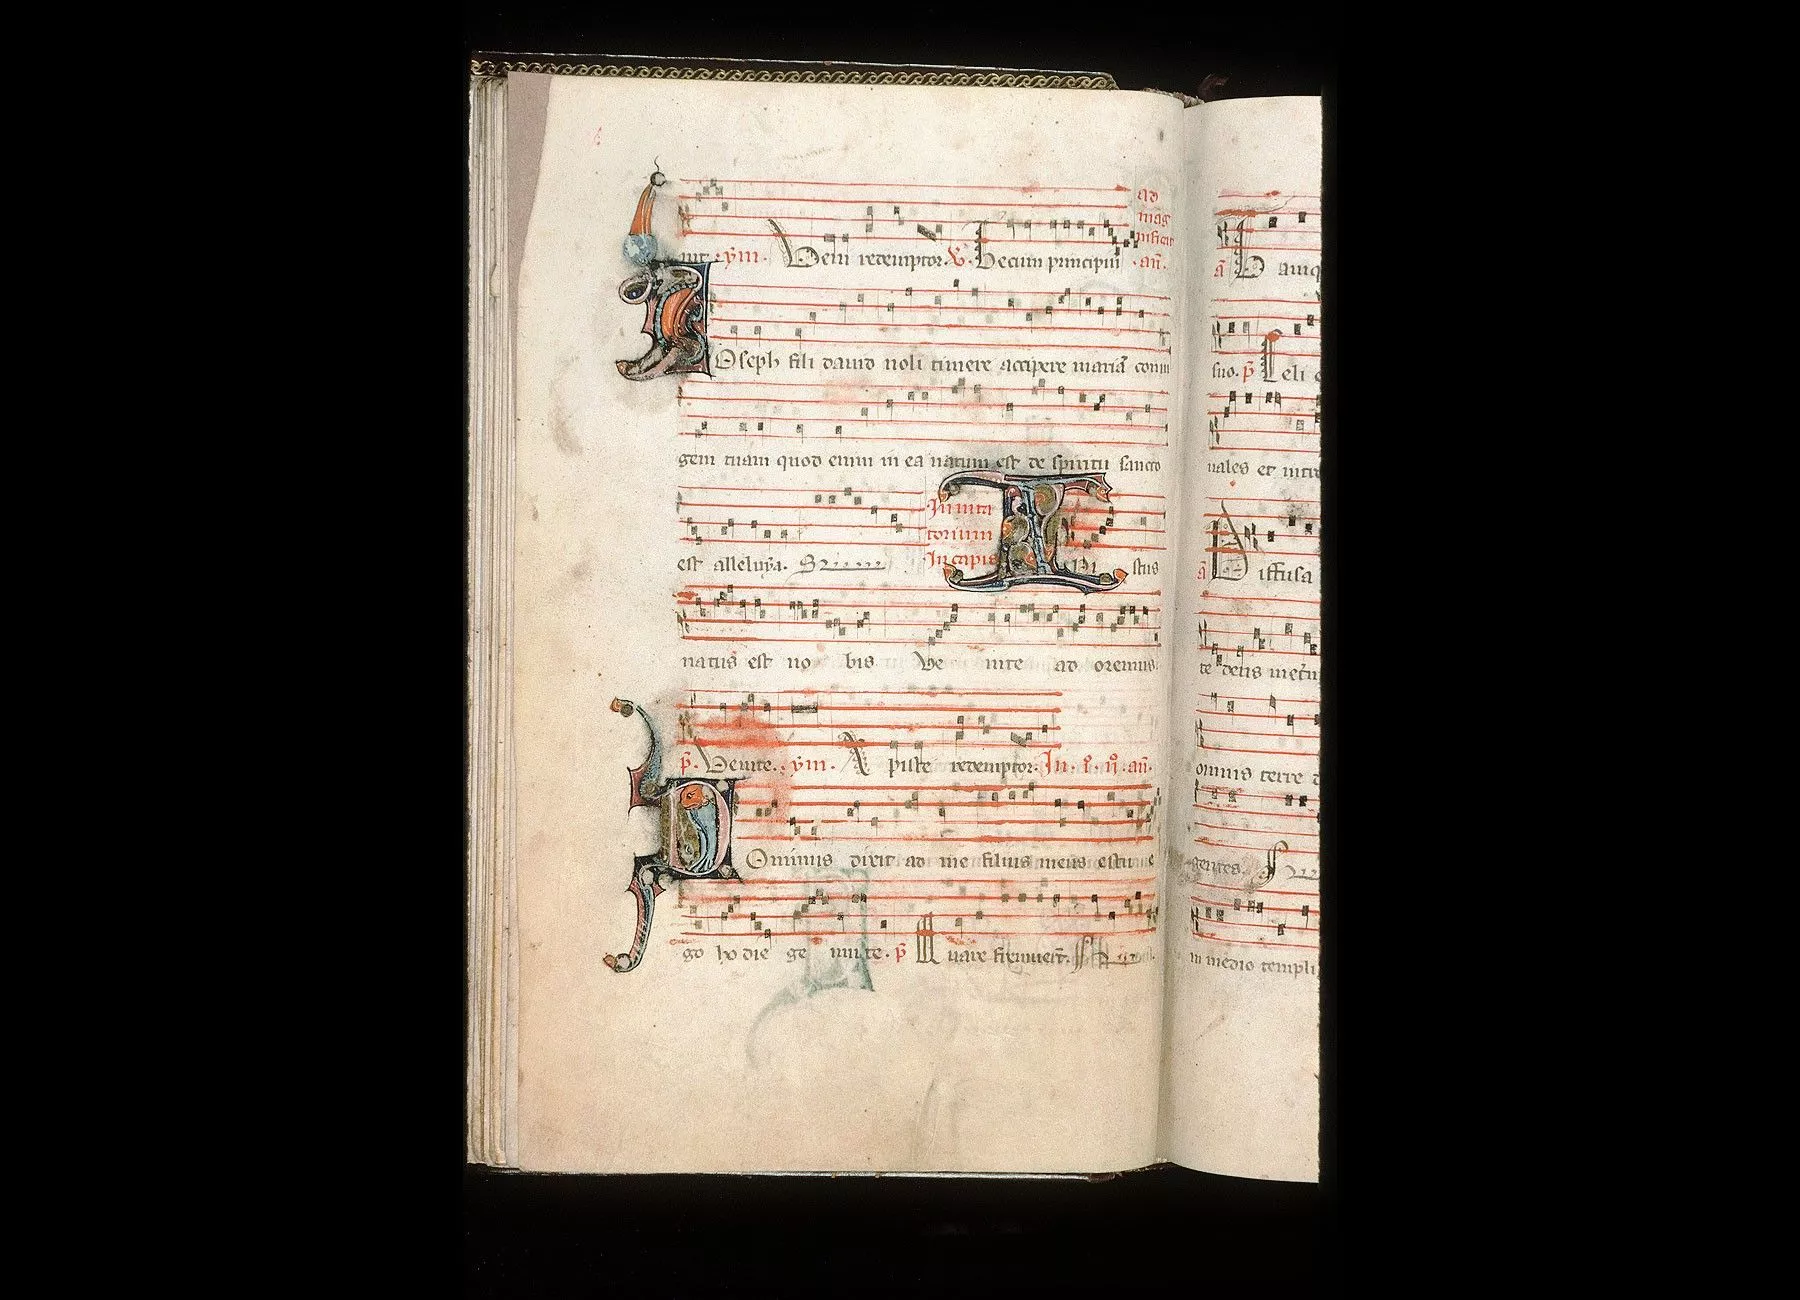 ad
mag
nificat
nit. ym. Veni redemptor. ℣. Tecum principiū. añ.
Joseph fili david noli timere accipere mariā coniu
gem tuam quod enim in ea natum est de spiritu sancto
Invita
torium
est alleluya. Incipit Xpi stus
natus est no bis Ve nite ad oremus
p̄. Venite. ym. A piste redemptor. In. añ.
Dominus dixit ad me filius meus es tu e
go ho die ge nui te. p̄ Quare fremuerūt.
ā
suo. p̄ eli e
uales et
ā Diffusa
te deus
omnis terre
gentes.
in medio templi